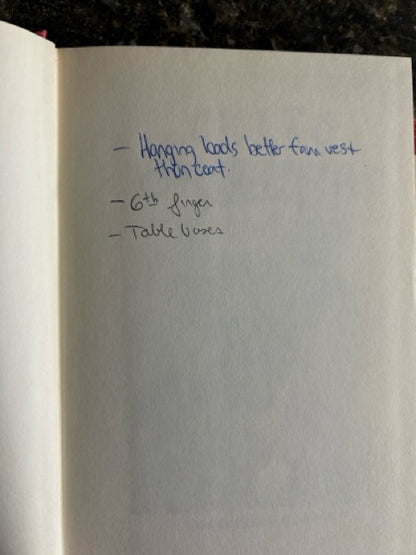 - Hanging loads better from vest
than coat.
- 6th finger
- Table bases